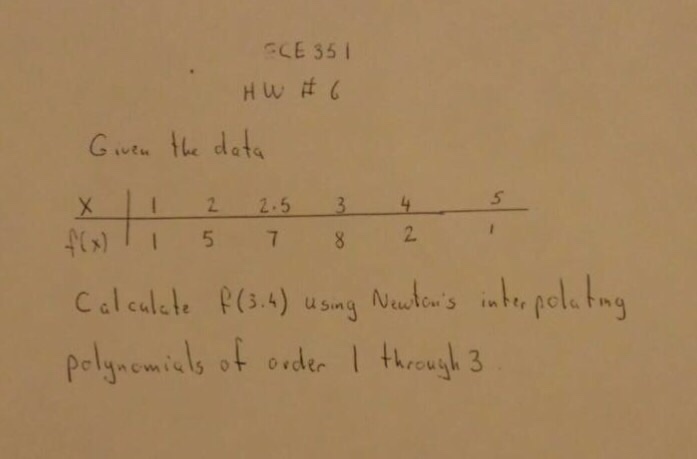 ECE 351
HW # 6
Given the data
x | 1 2 2.5 3 4 5
f(x) | 1 5 7 8 2 1
Calculate f(3.4) using Newton's interpolating
polynomials of order 1 through 3.